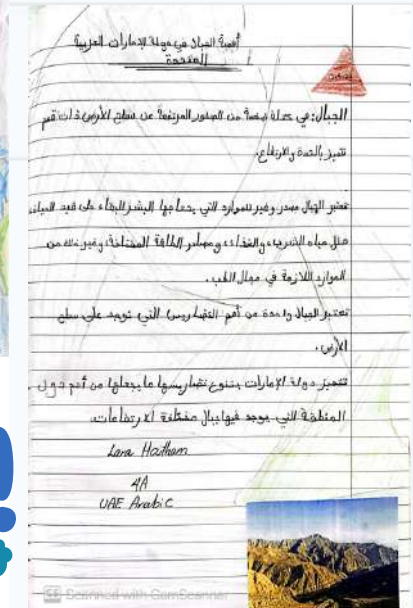 أهمية الجبال في دولة الإمارات العربية
المتحدة
الجبال: هي كتلة ضخمة من الصخور المرتفعة عن سطح الأرض ذات قمم
تتميز بالحدة والارتفاع.
تعتبر الجبال مصدر وفير للموارد التي يحتاجها البشر للبقاء على قيد الحياة
مثل مياه الشرب، والغذاء، ومصادر الطاقة المختلفة، وغير ذلك من
الموارد اللازمة في مجال الطب.
تعتبر الجبال واحدة من أهم التضاريس التي توجد على سطح
الأرض.
تتميز دولة الإمارات بتنوع تضاريسها ما يجعلها من أهم دول
المنطقة التي يوجد فيها جبال مختلفة الارتفاعات.
Lara Haitham
4A
UAE Arabic
CS Scanned with CamScanner